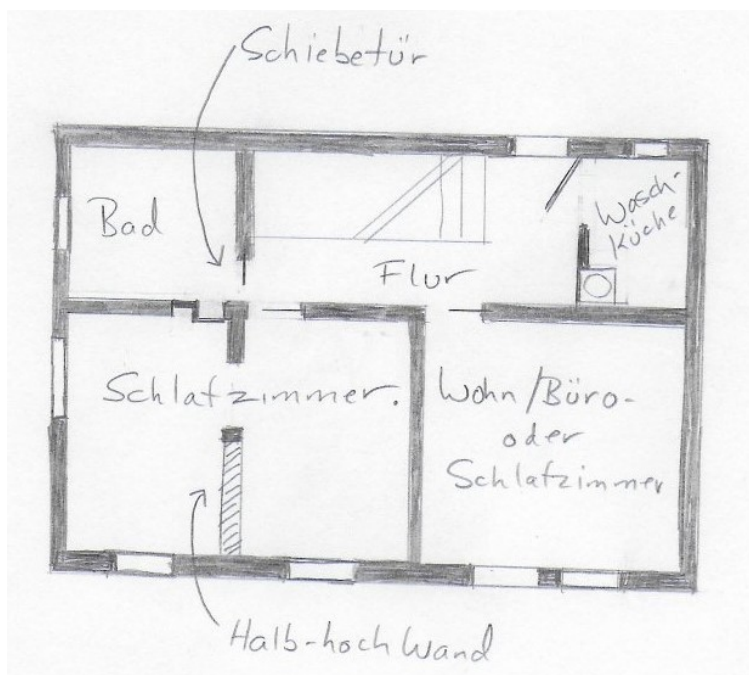 Schiebetür
Bad
Wasch-
Küche
Flur
Schlafzimmer.
Wohn/Büro-
oder
Schlafzimmer
Halb-hoch Wand